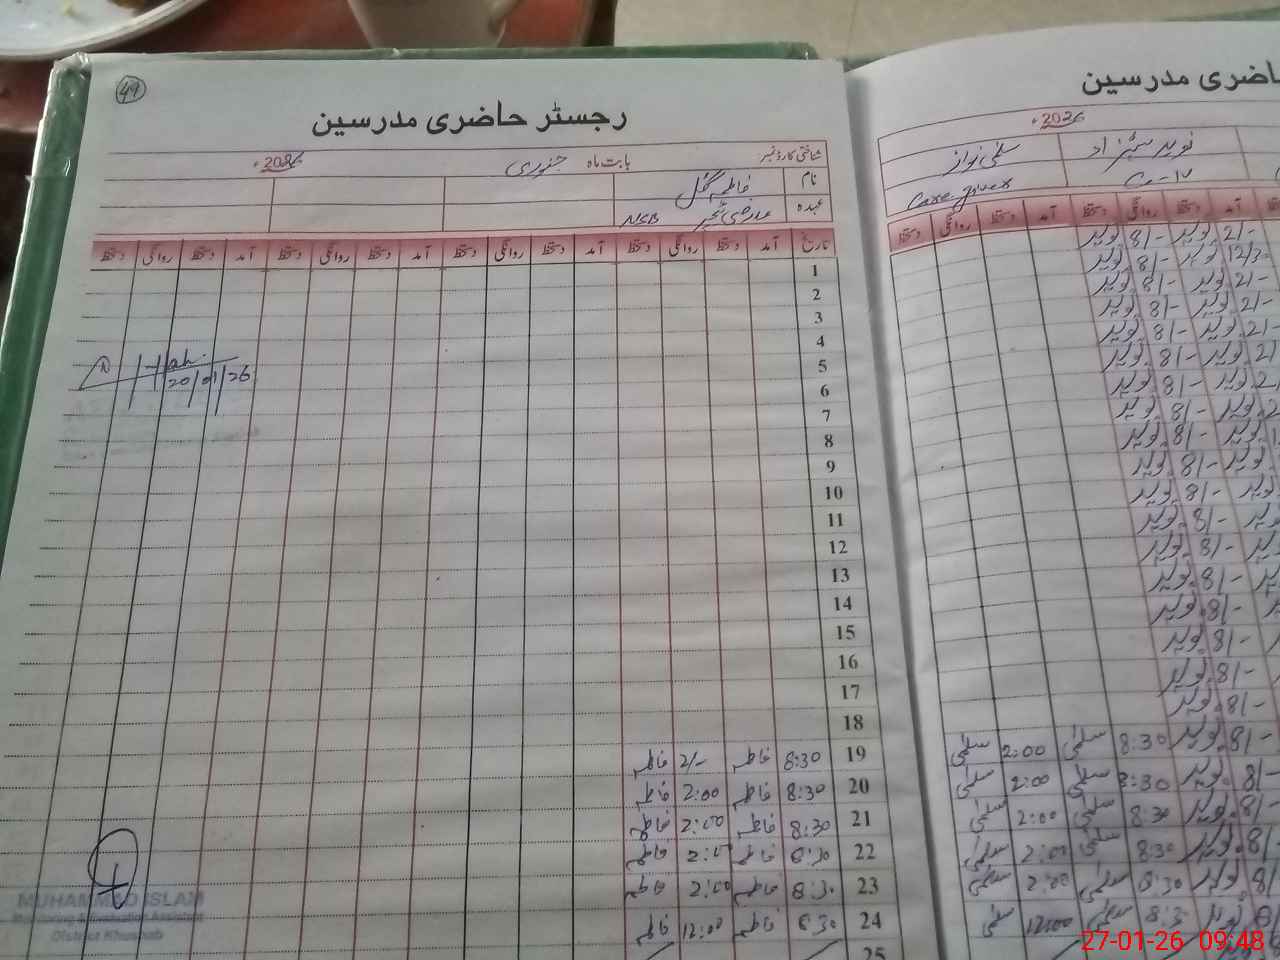 49
رجسٹر حاضری مدرسین
شناختی کارڈ نمبر بابت ماہ جنوری 2026ء
نام فاطمہ گل
عہدہ NSB
تاریخ آمد دستخط روانگی دستخط آمد دستخط روانگی دستخط آمد دستخط روانگی دستخط آمد دستخط روانگی دستخط
1
2
3
4
5
20/01/26
6
7
8
9
10
11
12
13
14
15
16
17
18
19 8:30 فاطمہ 2/- فاطمہ
20 8:30 فاطمہ 2:00 فاطمہ
21 8:30 فاطمہ 2:00 فاطمہ
22 8:30 فاطمہ 2:00 فاطمہ
23 8:30 فاطمہ 2:00 فاطمہ
24 8:30 فاطمہ 12:00 فاطمہ
25
MUHAMMAD ISLAM
Monitoring & Evaluation Assistant
District Khushab
حاضری مدرسین
2026ء
نوید شہزاد سلمیٰ نواز
C-IV Care giver
آمد دستخط روانگی دستخط آمد دستخط روانگی دستخط
2/- نوید 8/- نوید
12/30 نوید 8/- نوید
2/- نوید 8/- نوید
2/- نوید 8/- نوید
2/- نوید 8/- نوید
نوید 8/- نوید
نوید 8/- نوید
نوید 8/- نوید
نوید 8/- نوید
نوید 8/- نوید
نوید 8/- نوید
8/- نوید
8/- نوید
8/- نوید
8/- نوید
8/- نوید
8/- نوید
8/- نوید
8/- نوید 8:30 سلمیٰ 2:00 سلمیٰ
8/- نوید 8:30 سلمیٰ 2:00 سلمیٰ
8/- نوید 8:30 سلمیٰ 2:00 سلمیٰ
8/- نوید 8:30 سلمیٰ 2:00 سلمیٰ
8/- نوید 8:30 سلمیٰ 2:00 سلمیٰ
نوید 8:30 سلمیٰ 12:00 سلمیٰ
27-01-26 09:48